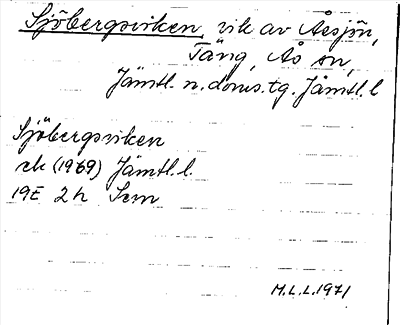 Sjöbergsviken, vik av Åssjön,
Täng, Ås sn,
Jämtl. n. doms. tg. Jämtl. l
Sjöbergsviken
ek (1969) Jämtl. l.
19E 2h Sem
M.L.L. 1971